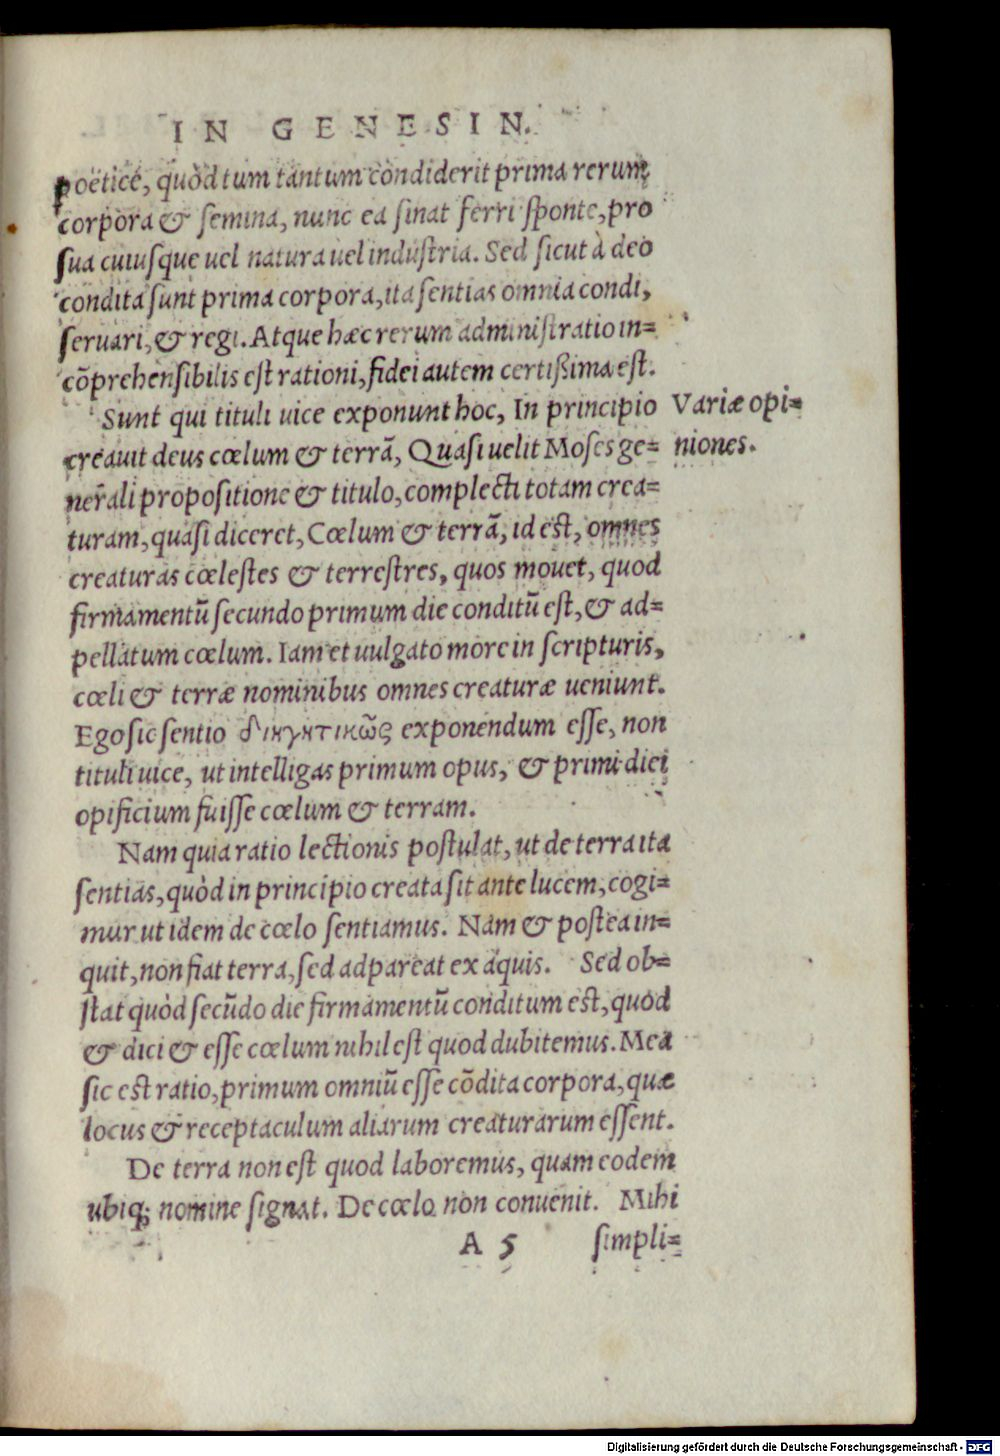 IN GENESIN.
poëticè, quòd tum tantum condiderit prima rerum
corpora & semina, nunc ea sinat ferri sponte, pro
sua cuiusque uel natura uel industria. Sed sicut à deo
condita sunt prima corpora, ita sentias omnia condi,
seruari, & regi. Atque hæc rerum administratio in=
cõprehensibilis est rationi, fidei autem certißima est.
Sunt qui tituli uice exponunt hoc, In principio
creauit deus cœlum & terrã, Quasi uelit Moses ge=
nerali propositione & titulo, complecti totam crea=
turam, quasi diceret, Cœlum & terrã, id est, omnes
creaturas cœlestes & terrestres, quos mouet, quod
firmamentũ secundo primum die conditũ est, & ad=
pellatum cœlum. Iam et uulgato more in scripturis,
cœli & terræ nominibus omnes creaturæ ueniunt.
Ego sic sentio διηγητικῶς exponendum esse, non
tituli uice, ut intelligas primum opus, & primi diei
opificium fuisse cœlum & terram.
Nam quia ratio lectionis postulat, ut de terra ita
sentias, quòd in principio creata sit ante lucem, cogi=
mur ut idem de cœlo sentiamus. Nam & postea in=
quit, non fiat terra, sed adpareat ex aquis. Sed ob=
stat quòd secũdo die firmamentũ conditum est, quod
& dici & esse cœlum nihil est quod dubitemus. Mea
sic est ratio, primum omniũ esse cõdita corpora, quæ
locus & receptaculum aliarum creaturarum essent.
De terra non est quod laboremus, quam eodem
ubiq; nomine signat. De cœlo non conuenit. Mihi
A 5 simpli=
Variæ opi=
niones.
Digitalisierung gefördert durch die Deutsche Forschungsgemeinschaft - DFG